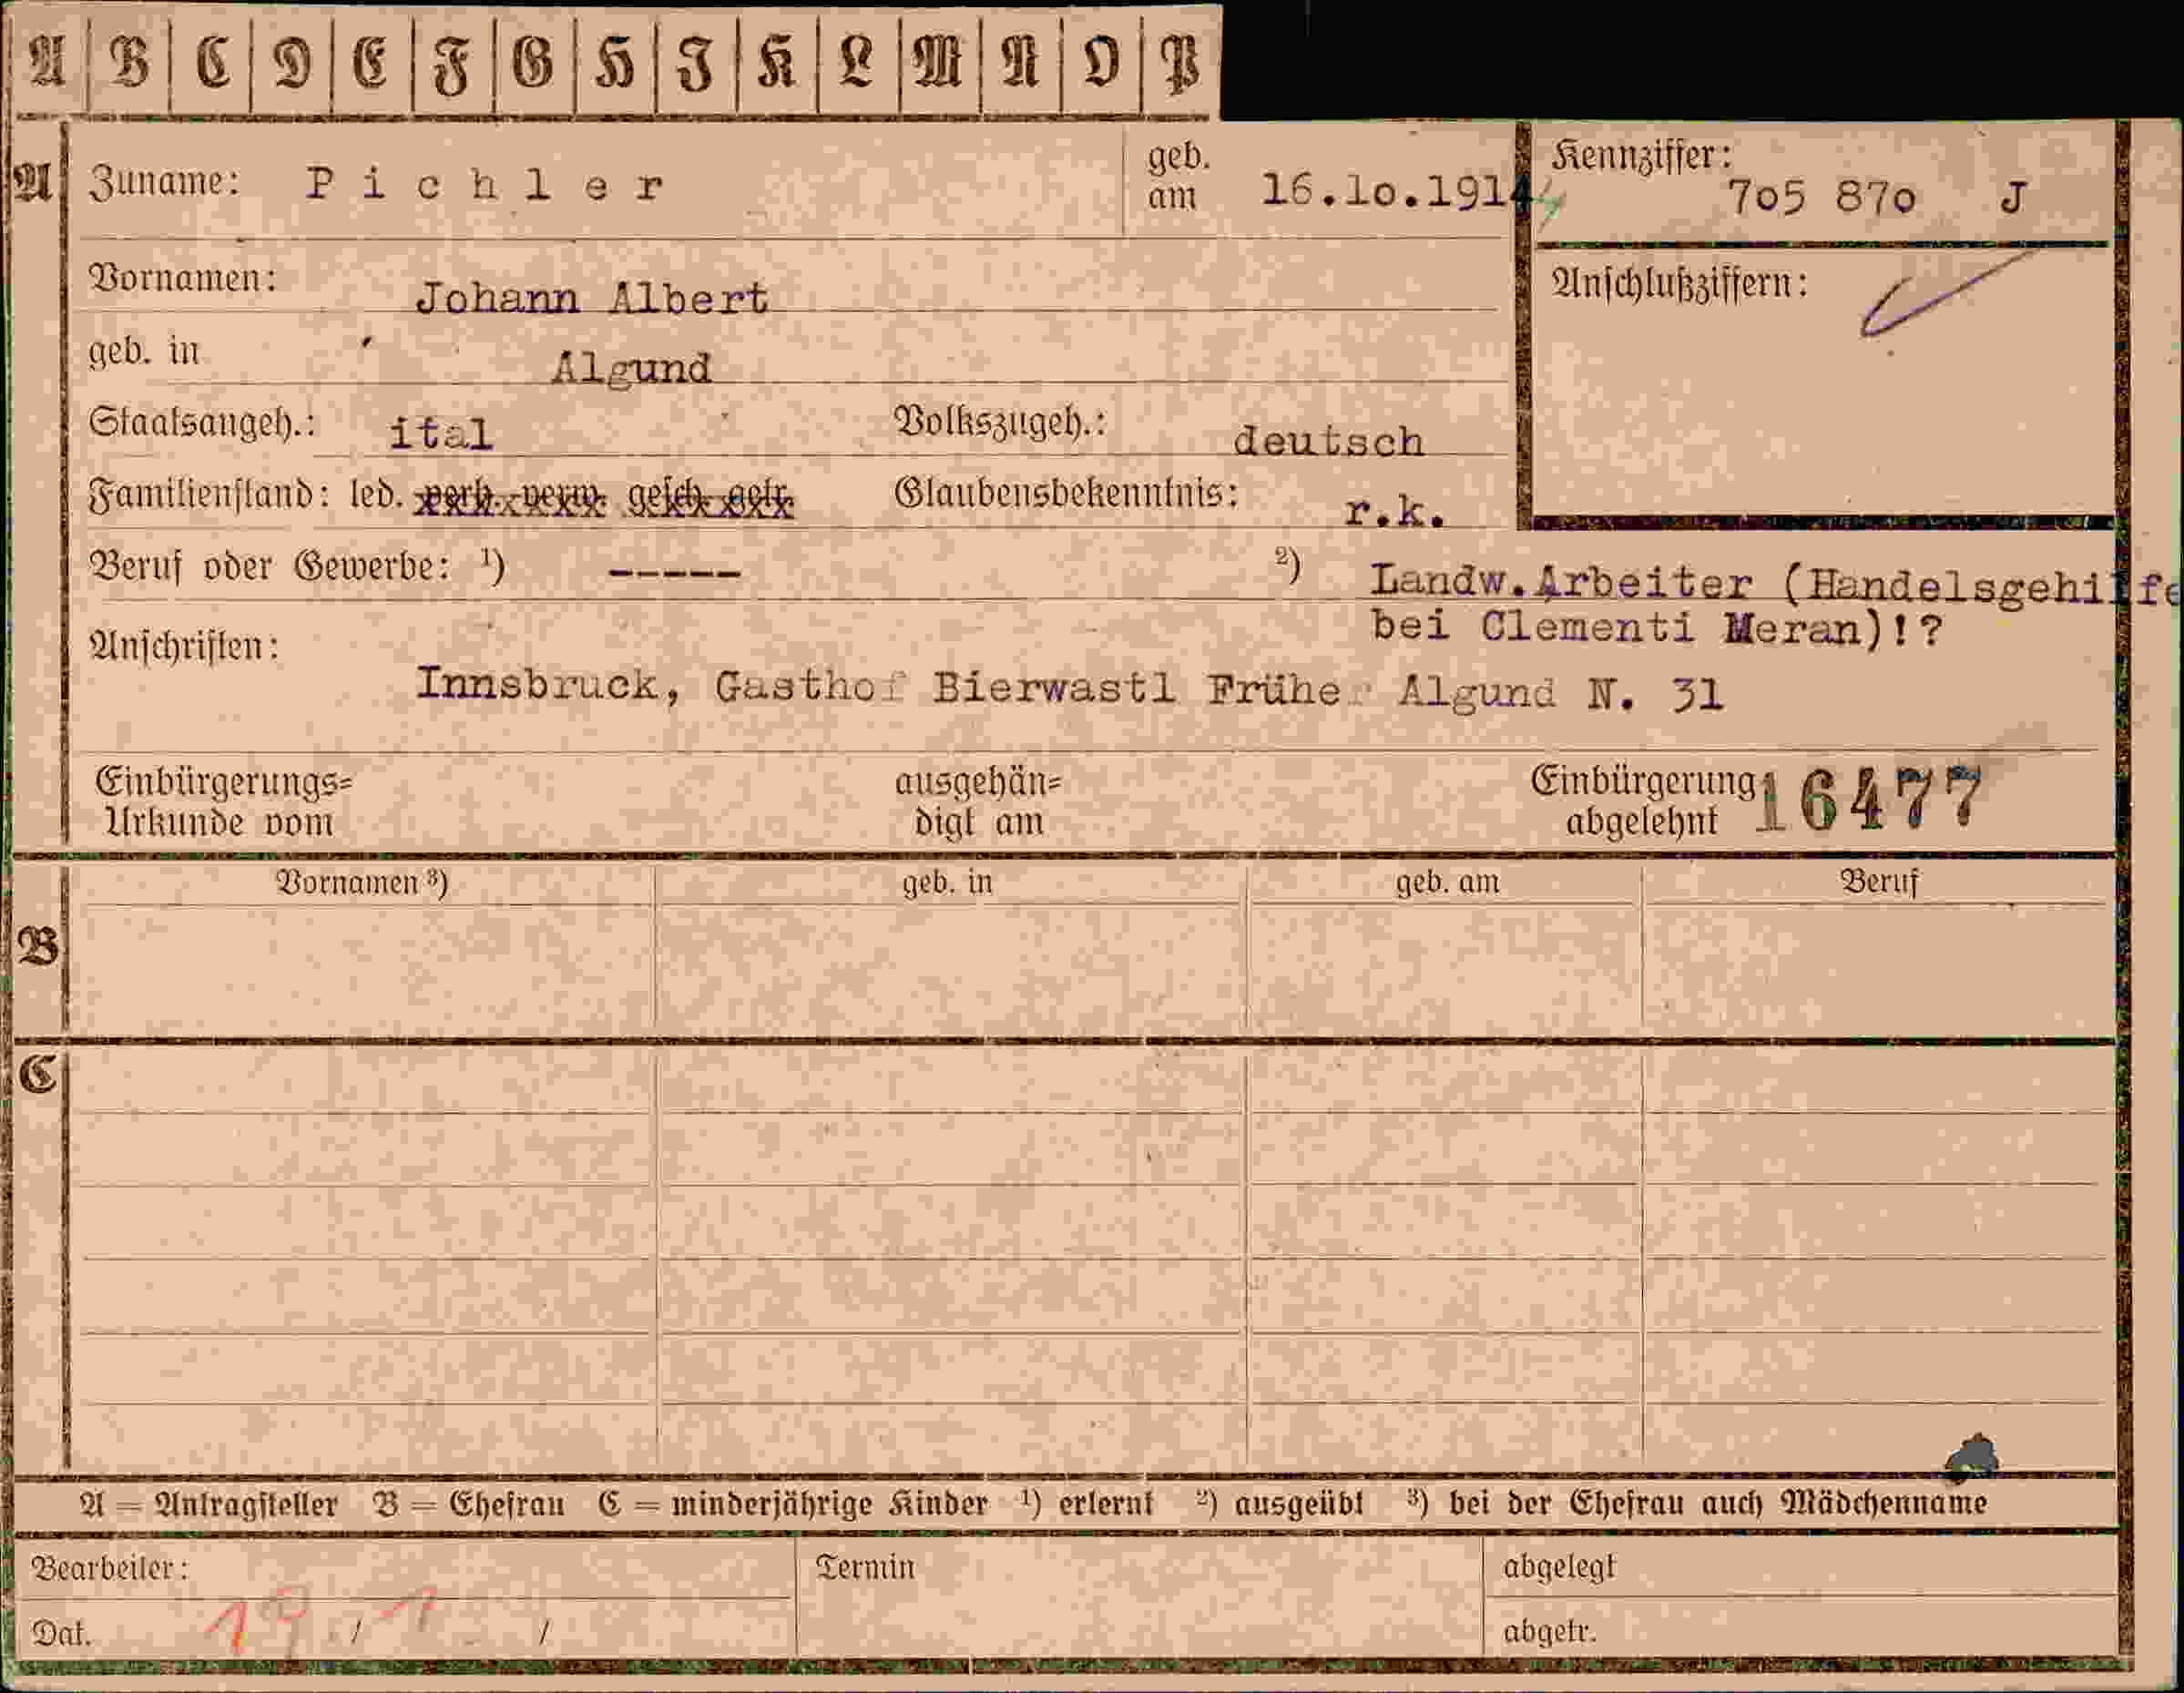 A B C D E F G H I K L M N O P
A Zuname: Pichler geb. am 16.10.1914 Kennziffer: 705 870 J
Vornamen: Johann Albert Anschlußziffern:
geb. in Algund
Staatsangeh.: ital Volkszugeh.: deutsch
Familienstand: led. verh. verw. gesch. getr. Glaubensbekenntnis: r.k.
Beruf oder Gewerbe: ¹) ----- ²) Landw.Arbeiter (Handelsgehilfe
bei Clementi Meran)!?
Anschriften:
Innsbruck, Gasthof Bierwastl Früher Algund N. 31
Einbürgerungs= ausgehän= Einbürgerung 16477
Urkunde vom digt am abgelehnt
Vornamen ³) geb. in geb. am Beruf
B
C
A = Antragsteller B = Ehefrau C = minderjährige Kinder ¹) erlernt ²) ausgeübt ³) bei der Ehefrau auch Mädchenname
Bearbeiter: Termin abgelegt
Dat. 19. / 1. / abgetr.